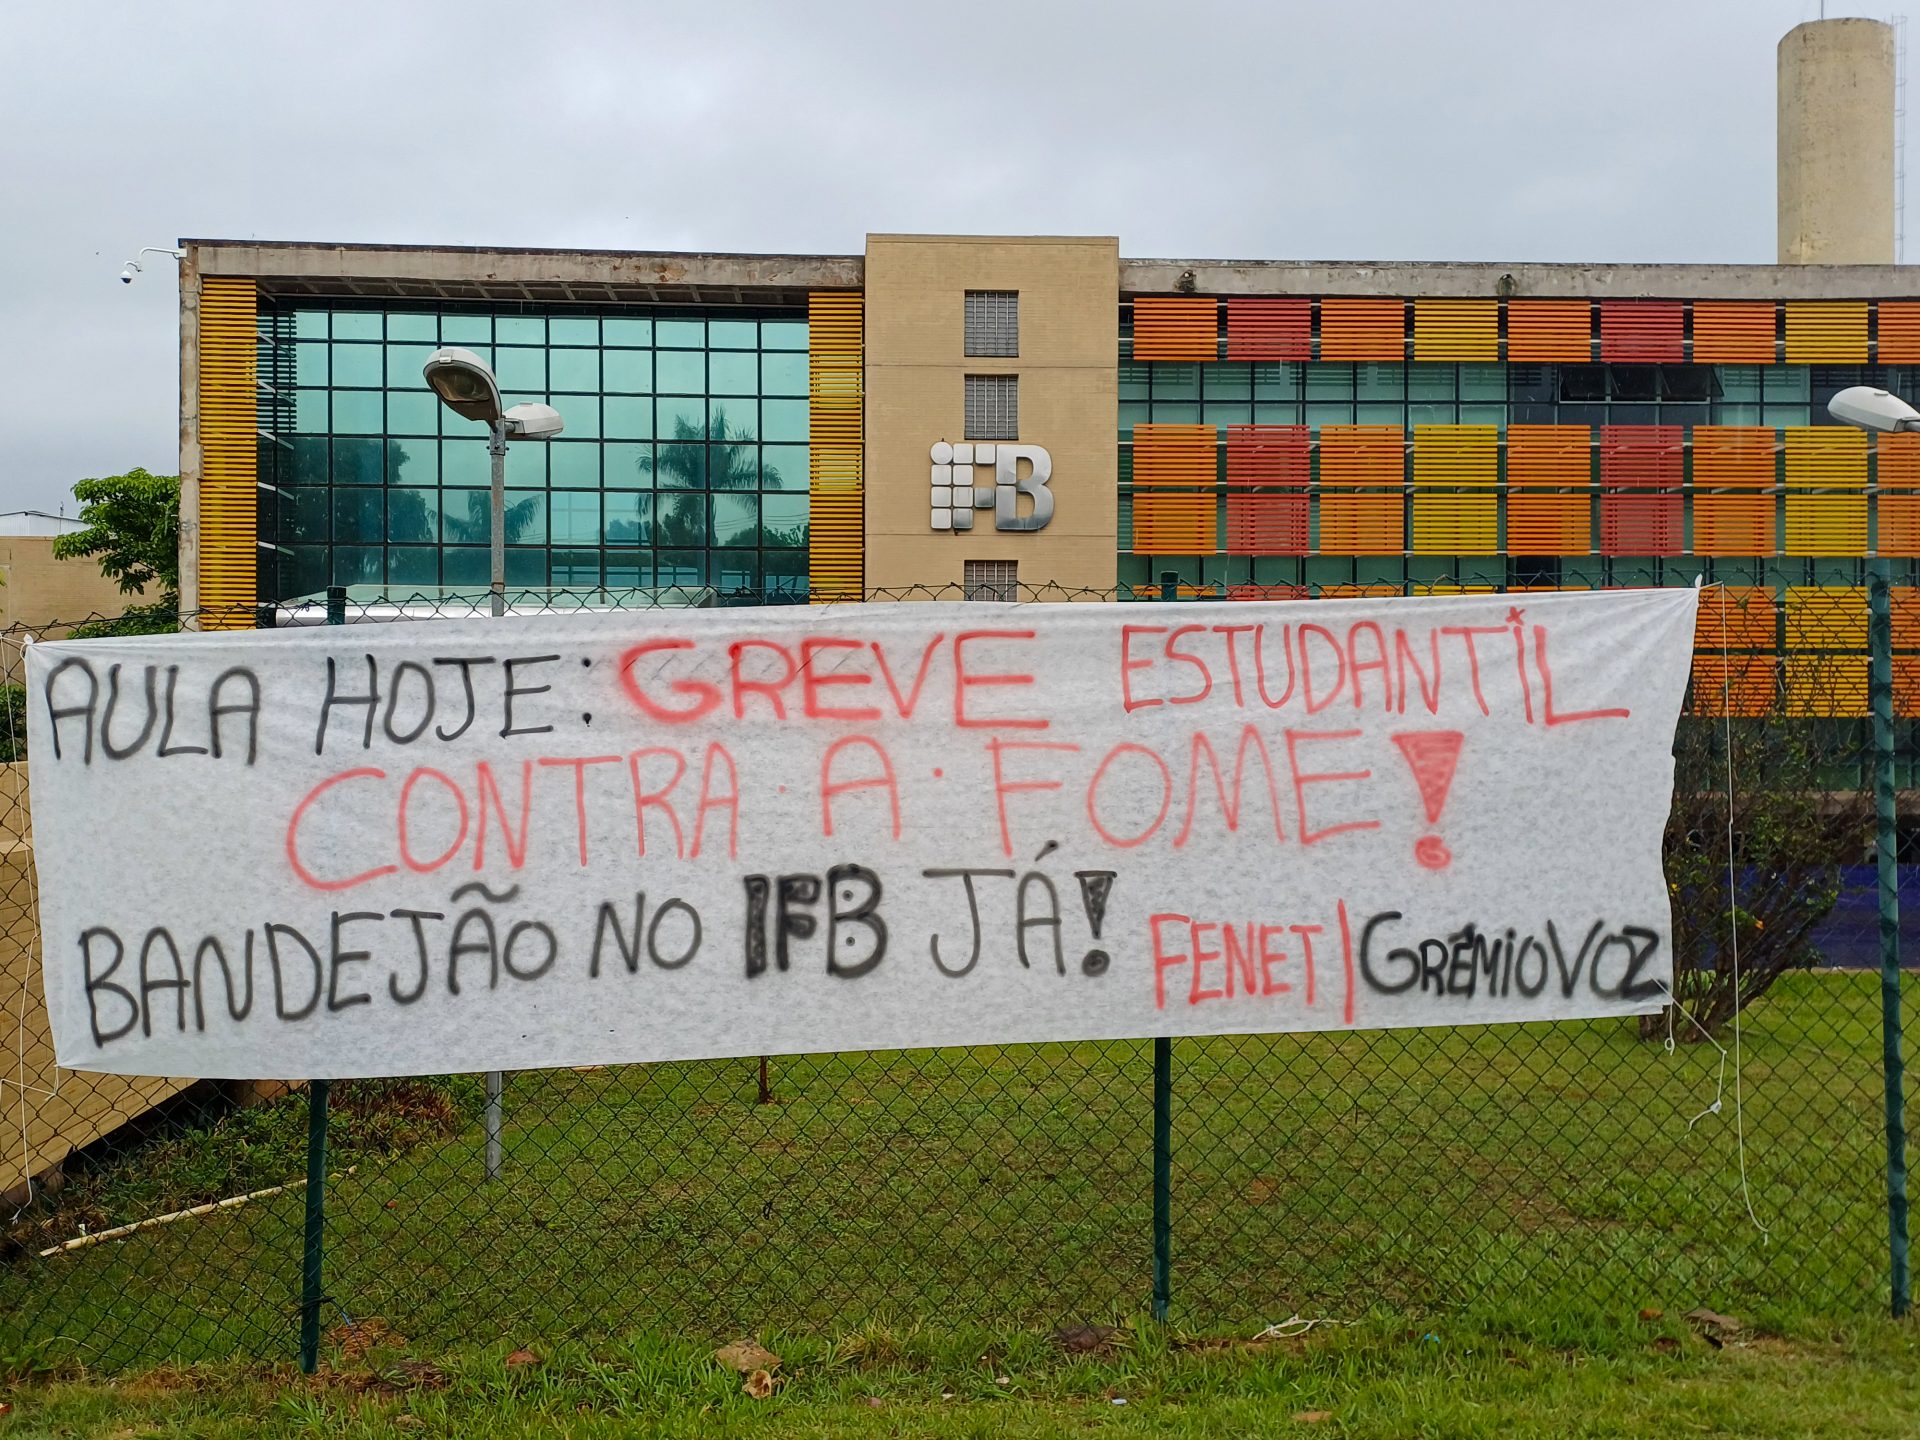 IFB
AULA HOJE: GREVE ESTUDANTIL
CONTRA·A·FOME!
BANDEJÃO NO IFB JÁ! FENET | GRÊMIO VOZ